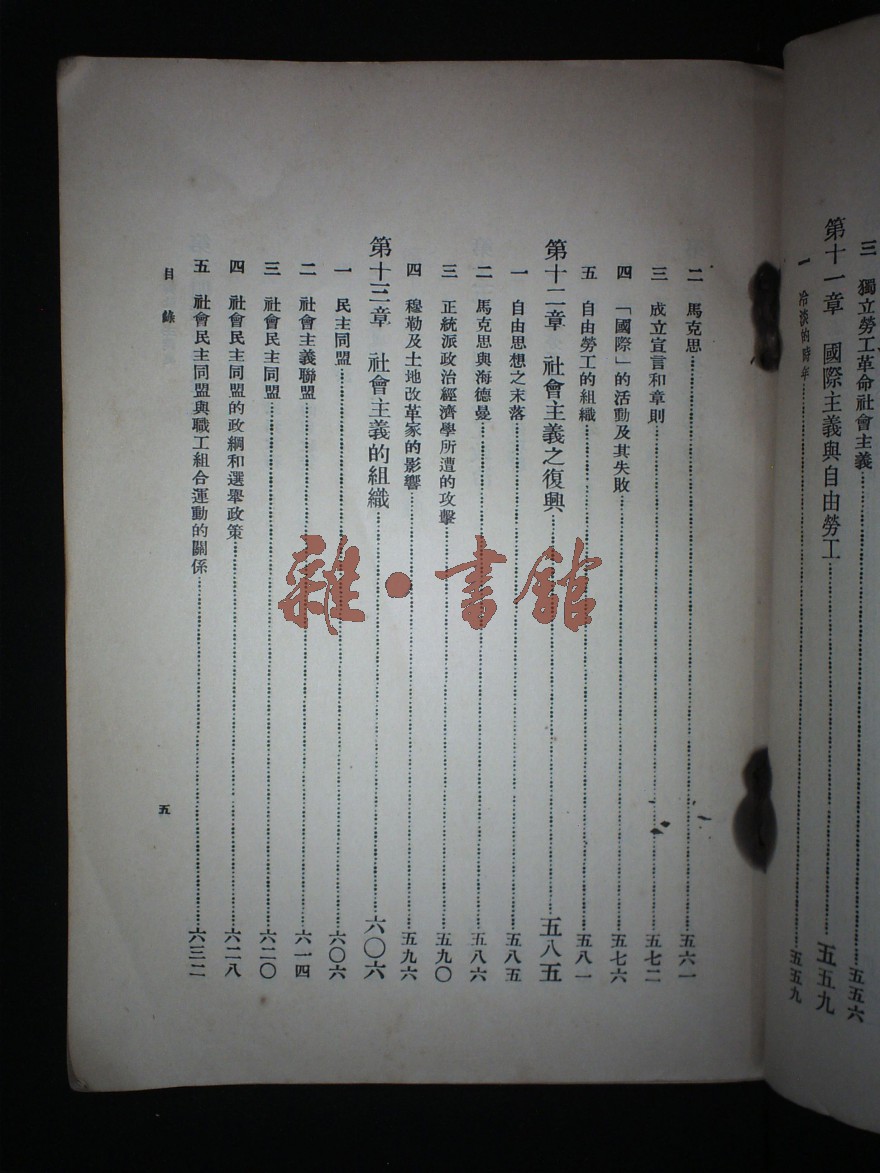 三　獨立勞工革命社會主義……五五六
第十一章　國際主義與自由勞工……五五九
一　冷淡的時年……五五九
二　馬克思……五六一
三　成立宣言和章則……五七二
四　「國際」的活動及其失敗……五七六
五　自由勞工的組織……五八一
第十二章　社會主義之復興……五八五
一　自由思想之末落……五八五
二　馬克思與海德曼……五八六
三　正統派政治經濟學所遭的攻擊……五九〇
四　穆勒及土地改革家的影響……五九六
第十三章　社會主義的組織……六〇六
一　民主同盟……六〇六
二　社會主義聯盟……六一四
三　社會民主同盟……六二〇
四　社會民主同盟的政綱和選舉政策……六二八
五　社會民主同盟與職工組合運動的關係……六三二
目錄
五
雜·書館